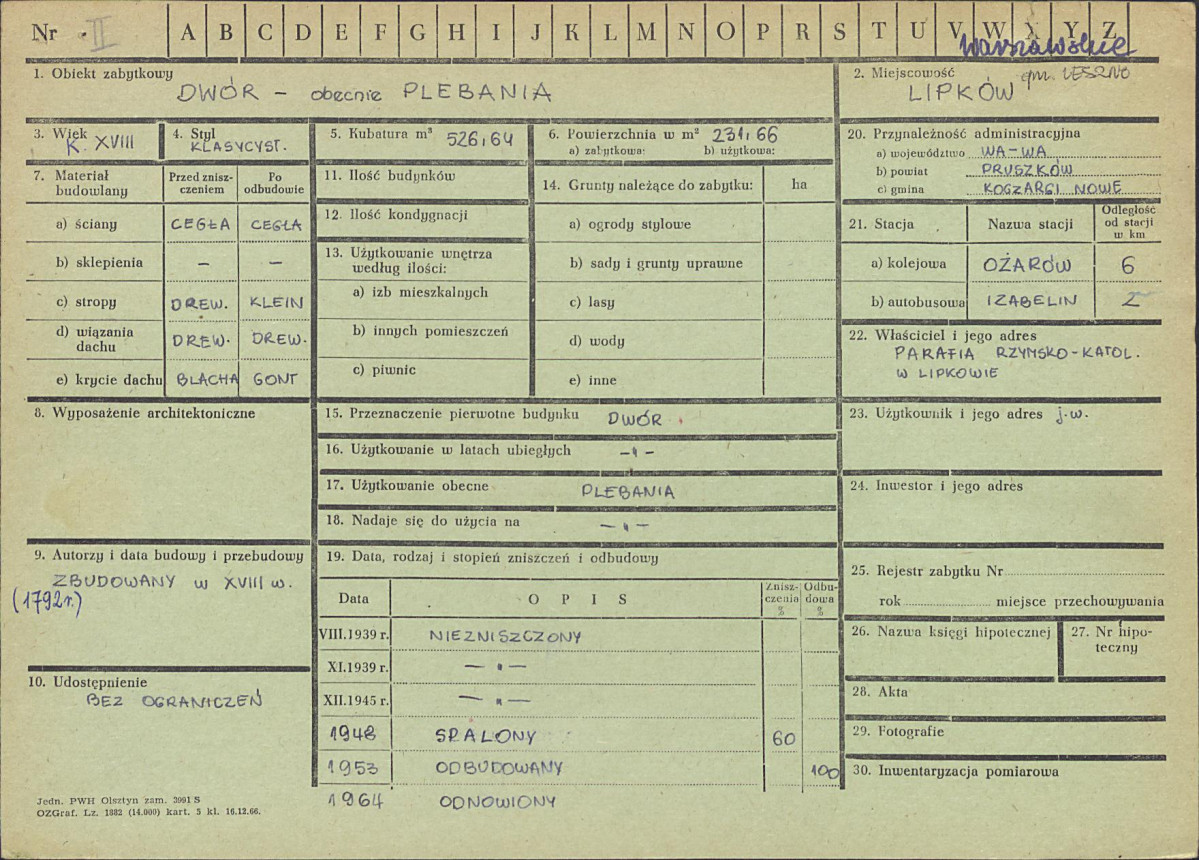 Nr II A B C D E F G H I J K L M N O P R S T U V W X Y Z
Warszawskie
1. Obiekt zabytkowy
DWÓR – obecnie PLEBANIA
2. Miejscowość gm. LESZNO
LIPKÓW
3. Wiek
K. XVIII
4. Styl
KLASYCYST.
5. Kubatura m³ 526,64
6. Powierzchnia w m² 231,66
a) zabytkowa: b) użytkowa:
7. Materiał budowlany
Przed znisz-
czeniem
Po
odbudowie
a) ściany CEGŁA CEGŁA
b) sklepienia – –
c) stropy DREW. KLEIN
d) wiązania
dachu DREW. DREW.
e) krycie dachu BLACHA GONT
8. Wyposażenie architektoniczne
9. Autorzy i data budowy i przebudowy
ZBUDOWANY w XVIII w.
(1792 r.)
10. Udostępnienie
BEZ OGRANICZEŃ
11. Ilość budynków
12. Ilość kondygnacji
13. Użytkowanie wnętrza
według ilości:
a) izb mieszkalnych
b) innych pomieszczeń
c) piwnic
14. Grunty należące do zabytku: ha
a) ogrody stylowe
b) sady i grunty uprawne
c) lasy
d) wody
e) inne
15. Przeznaczenie pierwotne budynku DWÓR
16. Użytkowanie w latach ubiegłych –"–
17. Użytkowanie obecne PLEBANIA
18. Nadaje się do użycia na –"–
19. Data, rodzaj i stopień zniszczeń i odbudowy
Data O P I S
Znisz-
czenia
%
Odbu-
dowa
%
VIII.1939 r. NIEZNISZCZONY
XI.1939 r. –"–
XII.1945 r. –"–
1948 SPALONY 60
1953 ODBUDOWANY 100
1964 ODNOWIONY
20. Przynależność administracyjna
a) województwo WA-WA
b) powiat PRUSZKÓW
c) gmina KOCZARGI NOWE
21. Stacja Nazwa stacji
Odległość
od stacji
w km
a) kolejowa OŻARÓW 6
b) autobusowa IZABELIN 2
22. Właściciel i jego adres
PARAFIA RZYMSKO-KATOL.
W LIPKOWIE
23. Użytkownik i jego adres j.w.
24. Inwestor i jego adres
25. Rejestr zabytku Nr
rok miejsce przechowywania
26. Nazwa księgi hipotecznej
27. Nr hipo-
teczny
28. Akta
29. Fotografie
30. Inwentaryzacja pomiarowa
Jedn. PWH Olsztyn zam. 3991 S
OZGraf. Lz. 1882 (14.000) kart. 5 kl. 16.12.66.